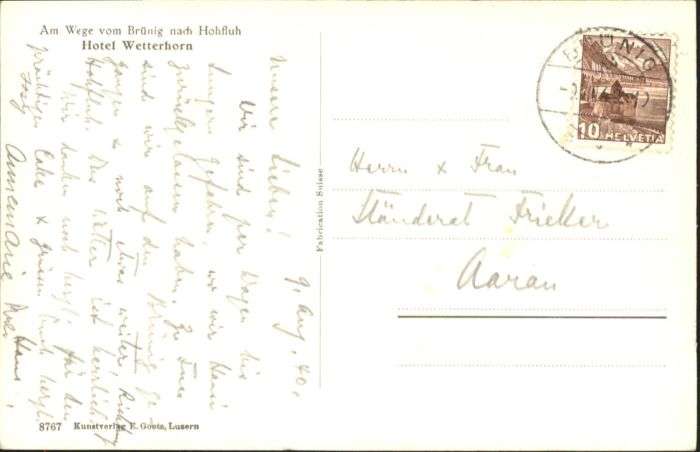 Am Wege vom Brünig nach Hohfluh
Hotel Wetterhorn
9. Aug. 40.
Meine Lieben!
Wir sind per Wagen bis
Lungern gefahren, wo wir Hansi
zurückgelassen haben. Zu Fuss
sind wir auf den Brünig ge-
gangen & noch etwas weiter, Richtg
Hohfluh. Das Wetter ist herrlich.
Wir danken noch herzl. für den
prächtigen Cake & grüssen Euch herzl.
Annemarie
Hans
Fabrication Suisse
BRÜNIG
10 HELVETIA
Herrn & Frau
Ständerat Fricker
Aarau
8767 Kunstverlag E. Goetz, Luzern